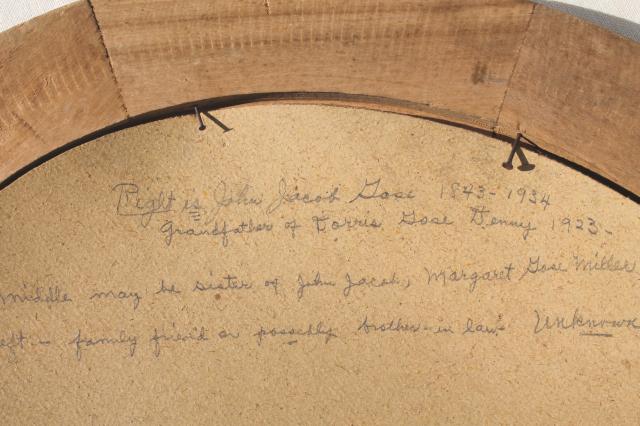 Right is John Jacob Gose 1843-1934
Grandfather of Dorris Gose Denny 1923-
middle may be sister of John Jacob, Margaret Gose Miller
eft - family friend or possebly brother-in law - Unknown